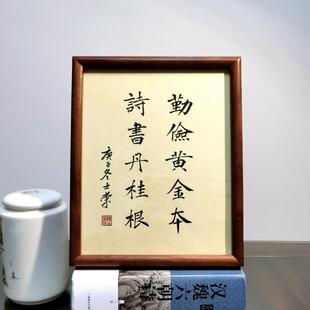 勤儉黃金本
詩書丹桂根
庚子冬士榮
汉魏六朝